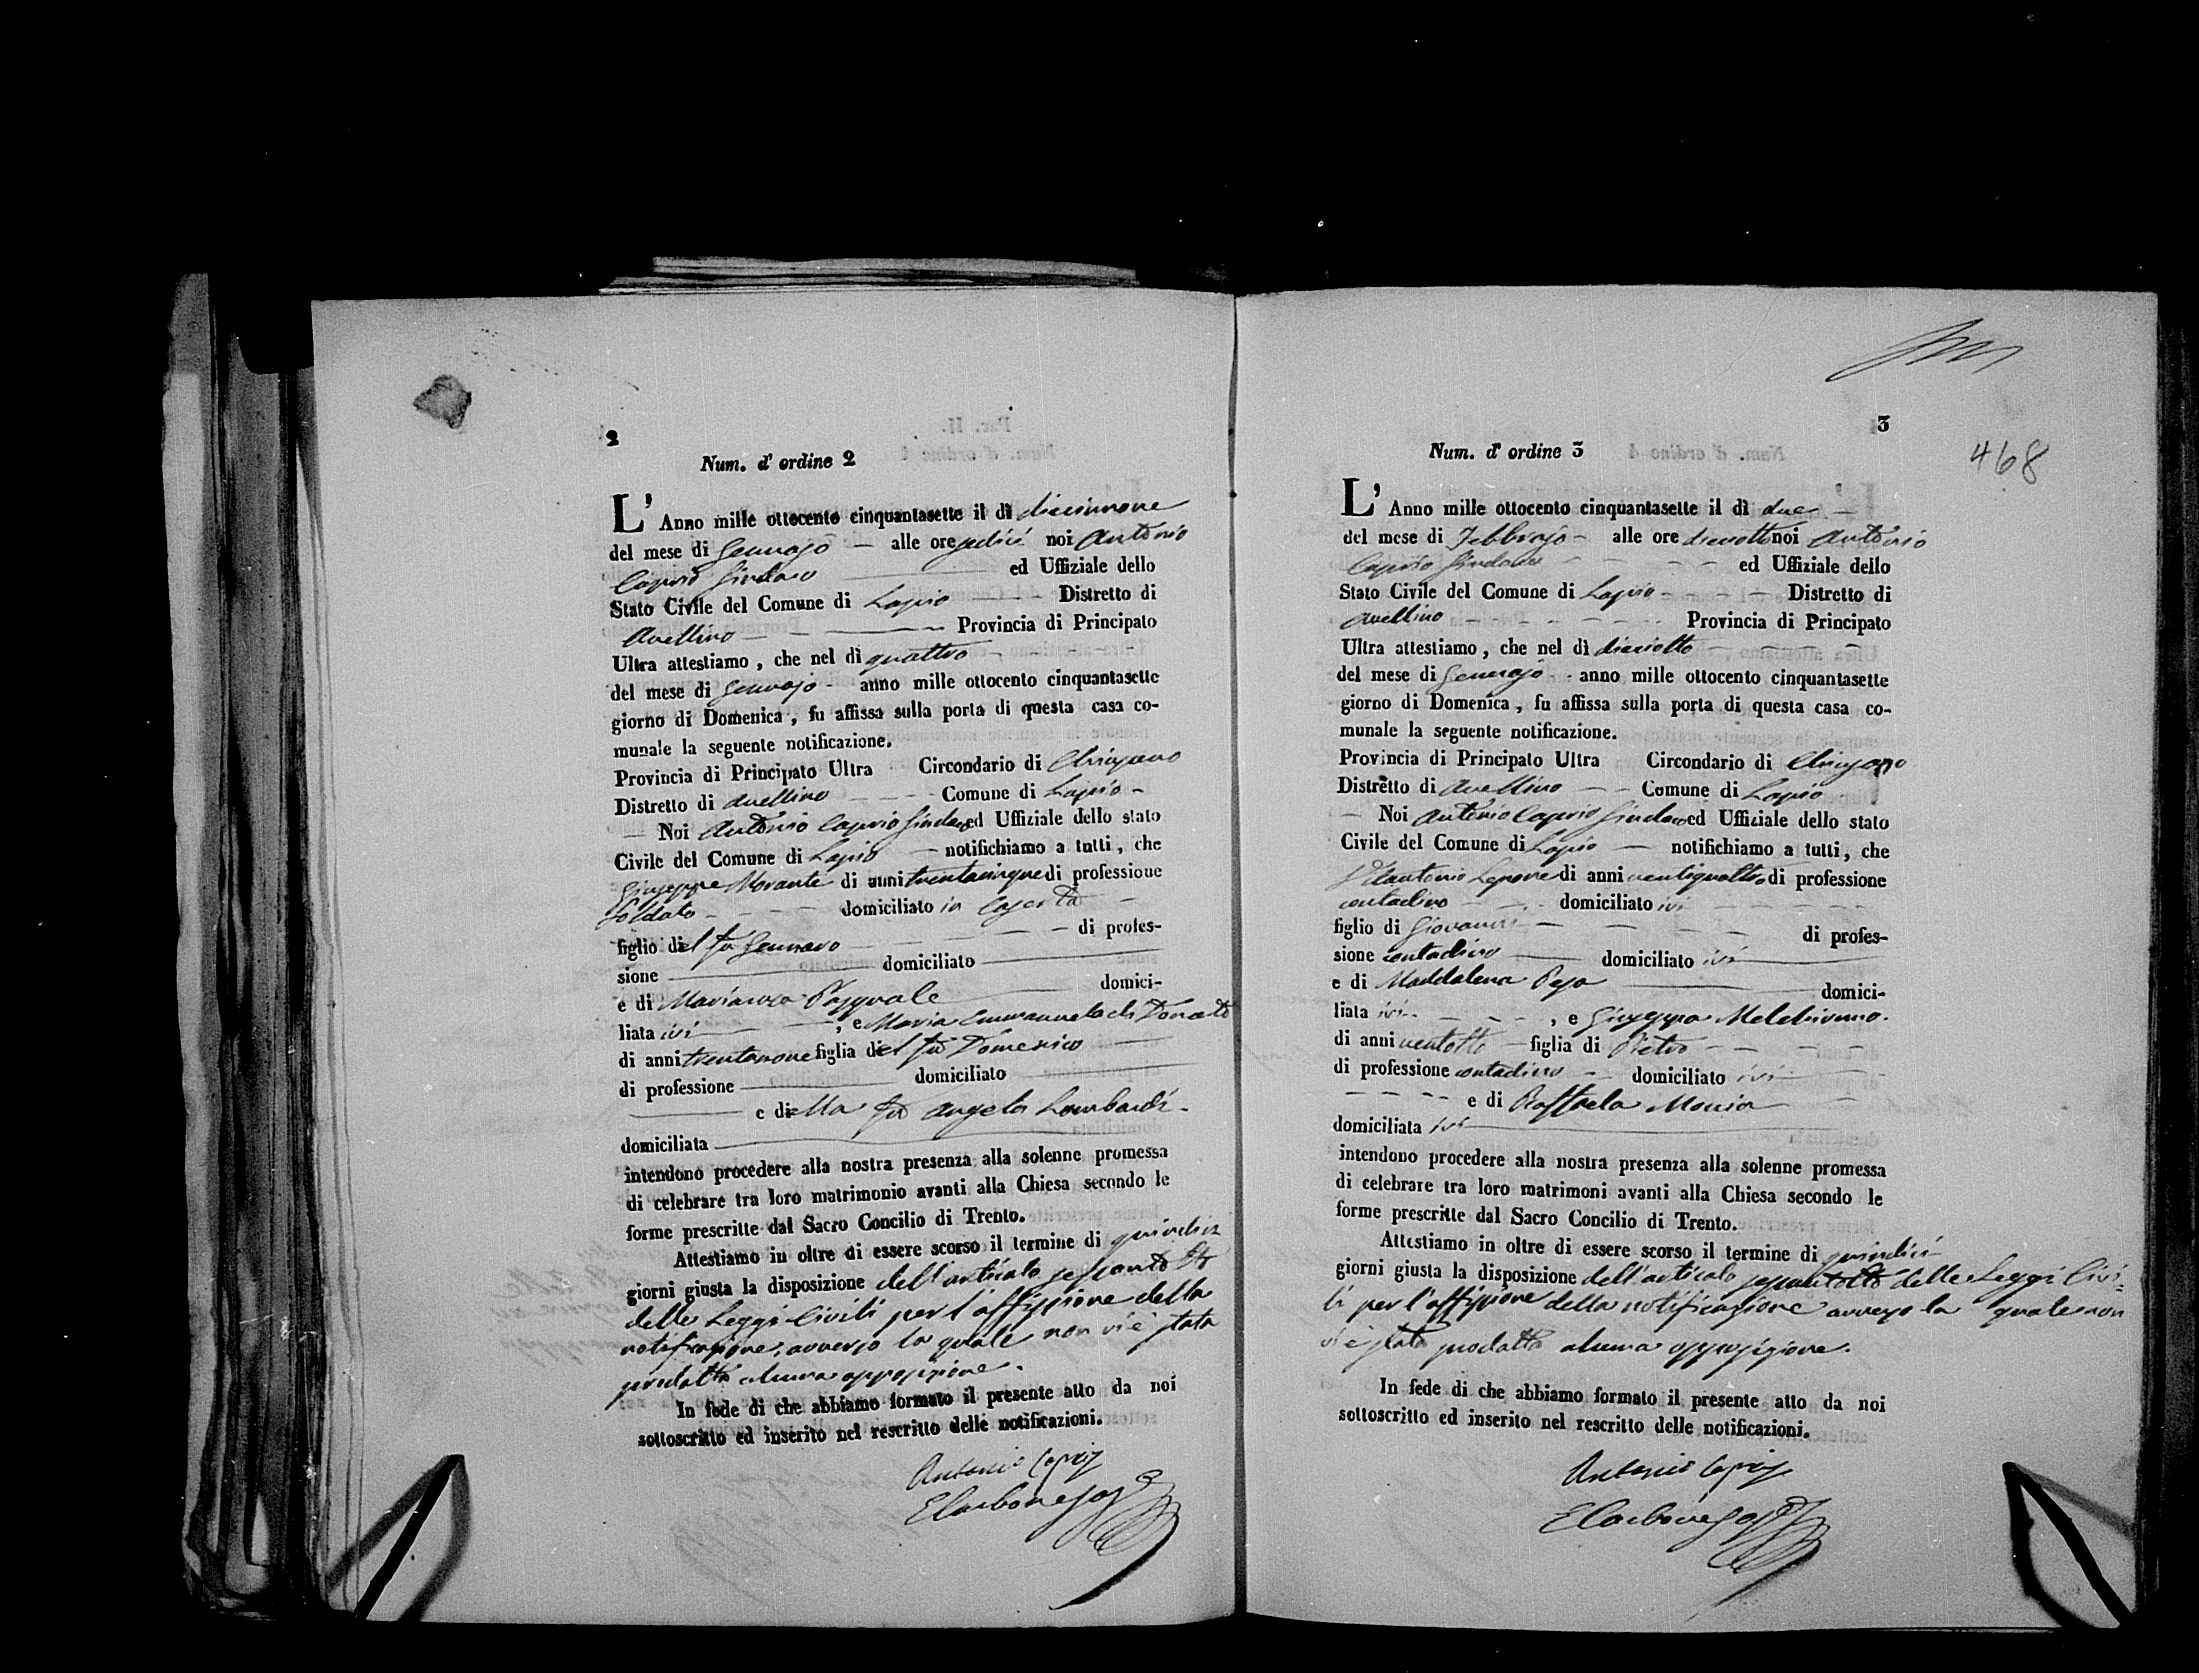 2
Num. d' ordine 2
L' Anno mille ottocento cinquantasette il dì diciannove
del mese di Gennajo — alle ore sedici noi Antonio
Caprio Sindaco ed Uffiziale dello
Stato Civile del Comune di Lapio — Distretto di
Avellino — Provincia di Principato
Ultra attestiamo, che nel dì quattro
del mese di Gennajo - anno mille ottocento cinquantasette
giorno di Domenica, fu affissa sulla porta di questa casa co-
munale la seguente notificazione.
Provincia di Principato Ultra Circondario di Chiusano
Distretto di Avellino — Comune di Lapio -
— Noi Antonio Caprio Sindaco ed Uffiziale dello stato
Civile del Comune di Lapio — notifichiamo a tutti, che
Giuseppe Morante di anni trentacinque di professione
Soldato - domiciliato in Caserta
figlio del fu Gennaro — di profes-
sione — domiciliato —
e di Marianna Pasquale — domici-
liata ivi — , e Maria Emmanuela di Donato
di anni trentanove figlia del fu Domenico —
di professione — domiciliato —
— e della fu Angela Lombardi -
domiciliata —
intendono procedere alla nostra presenza alla solenne promessa
di celebrare tra loro matrimonio avanti alla Chiesa secondo le
forme prescritte dal Sacro Concilio di Trento.
Attestiamo in oltre di essere scorso il termine di quindici
giorni giusta la disposizione dell'articolo sessantotto
delle Leggi Civili per l'affissione della
notificazione, avverso la quale non vi è stata
prodotta alcuna opposizione.
In fede di che abbiamo formato il presente atto da noi
sottoscritto ed inserito nel rescritto delle notificazioni.
Antonio Caprio
3
468
Num. d' ordine 3
L' Anno mille ottocento cinquantasette il dì due —
del mese di Febbrajo - alle ore diciotto noi Antonio
Caprio Sindaco ed Uffiziale dello
Stato Civile del Comune di Lapio - Distretto di
Avellino Provincia di Principato
Ultra attestiamo, che nel dì diciotto
del mese di Gennajo anno mille ottocento cinquantasette
giorno di Domenica, fu affissa sulla porta di questa casa co-
munale la seguente notificazione.
Provincia di Principato Ultra Circondario di Chiusano
Distretto di Avellino — Comune di Lapio
— Noi Antonio Caprio Sindaco ed Uffiziale dello stato
Civile del Comune di Lapio — notifichiamo a tutti, che
Lepore di anni ventiquattro di professione
contadino domiciliato ivi
figlio di Giovanni di profes-
sione contadino — domiciliato ivi
e di Maddalena — domici-
liata ivi , e Giuseppa
di anni ventotto — figlia di Pietro
di professione contadino — domiciliato ivi
e di Raffaela
domiciliata ivi
intendono procedere alla nostra presenza alla solenne promessa
di celebrare tra loro matrimoni avanti alla Chiesa secondo le
forme prescritte dal Sacro Concilio di Trento.
Attestiamo in oltre di essere scorso il termine di quindici
giorni giusta la disposizione dell'articolo sessantotto delle Leggi Civi=
li per l'affissione della notificazione avverso la quale non
vi è stata prodotta alcuna opposizione.
In fede di che abbiamo formato il presente atto da noi
sottoscritto ed inserito nel rescritto delle notificazioni.
Antonio Caprio